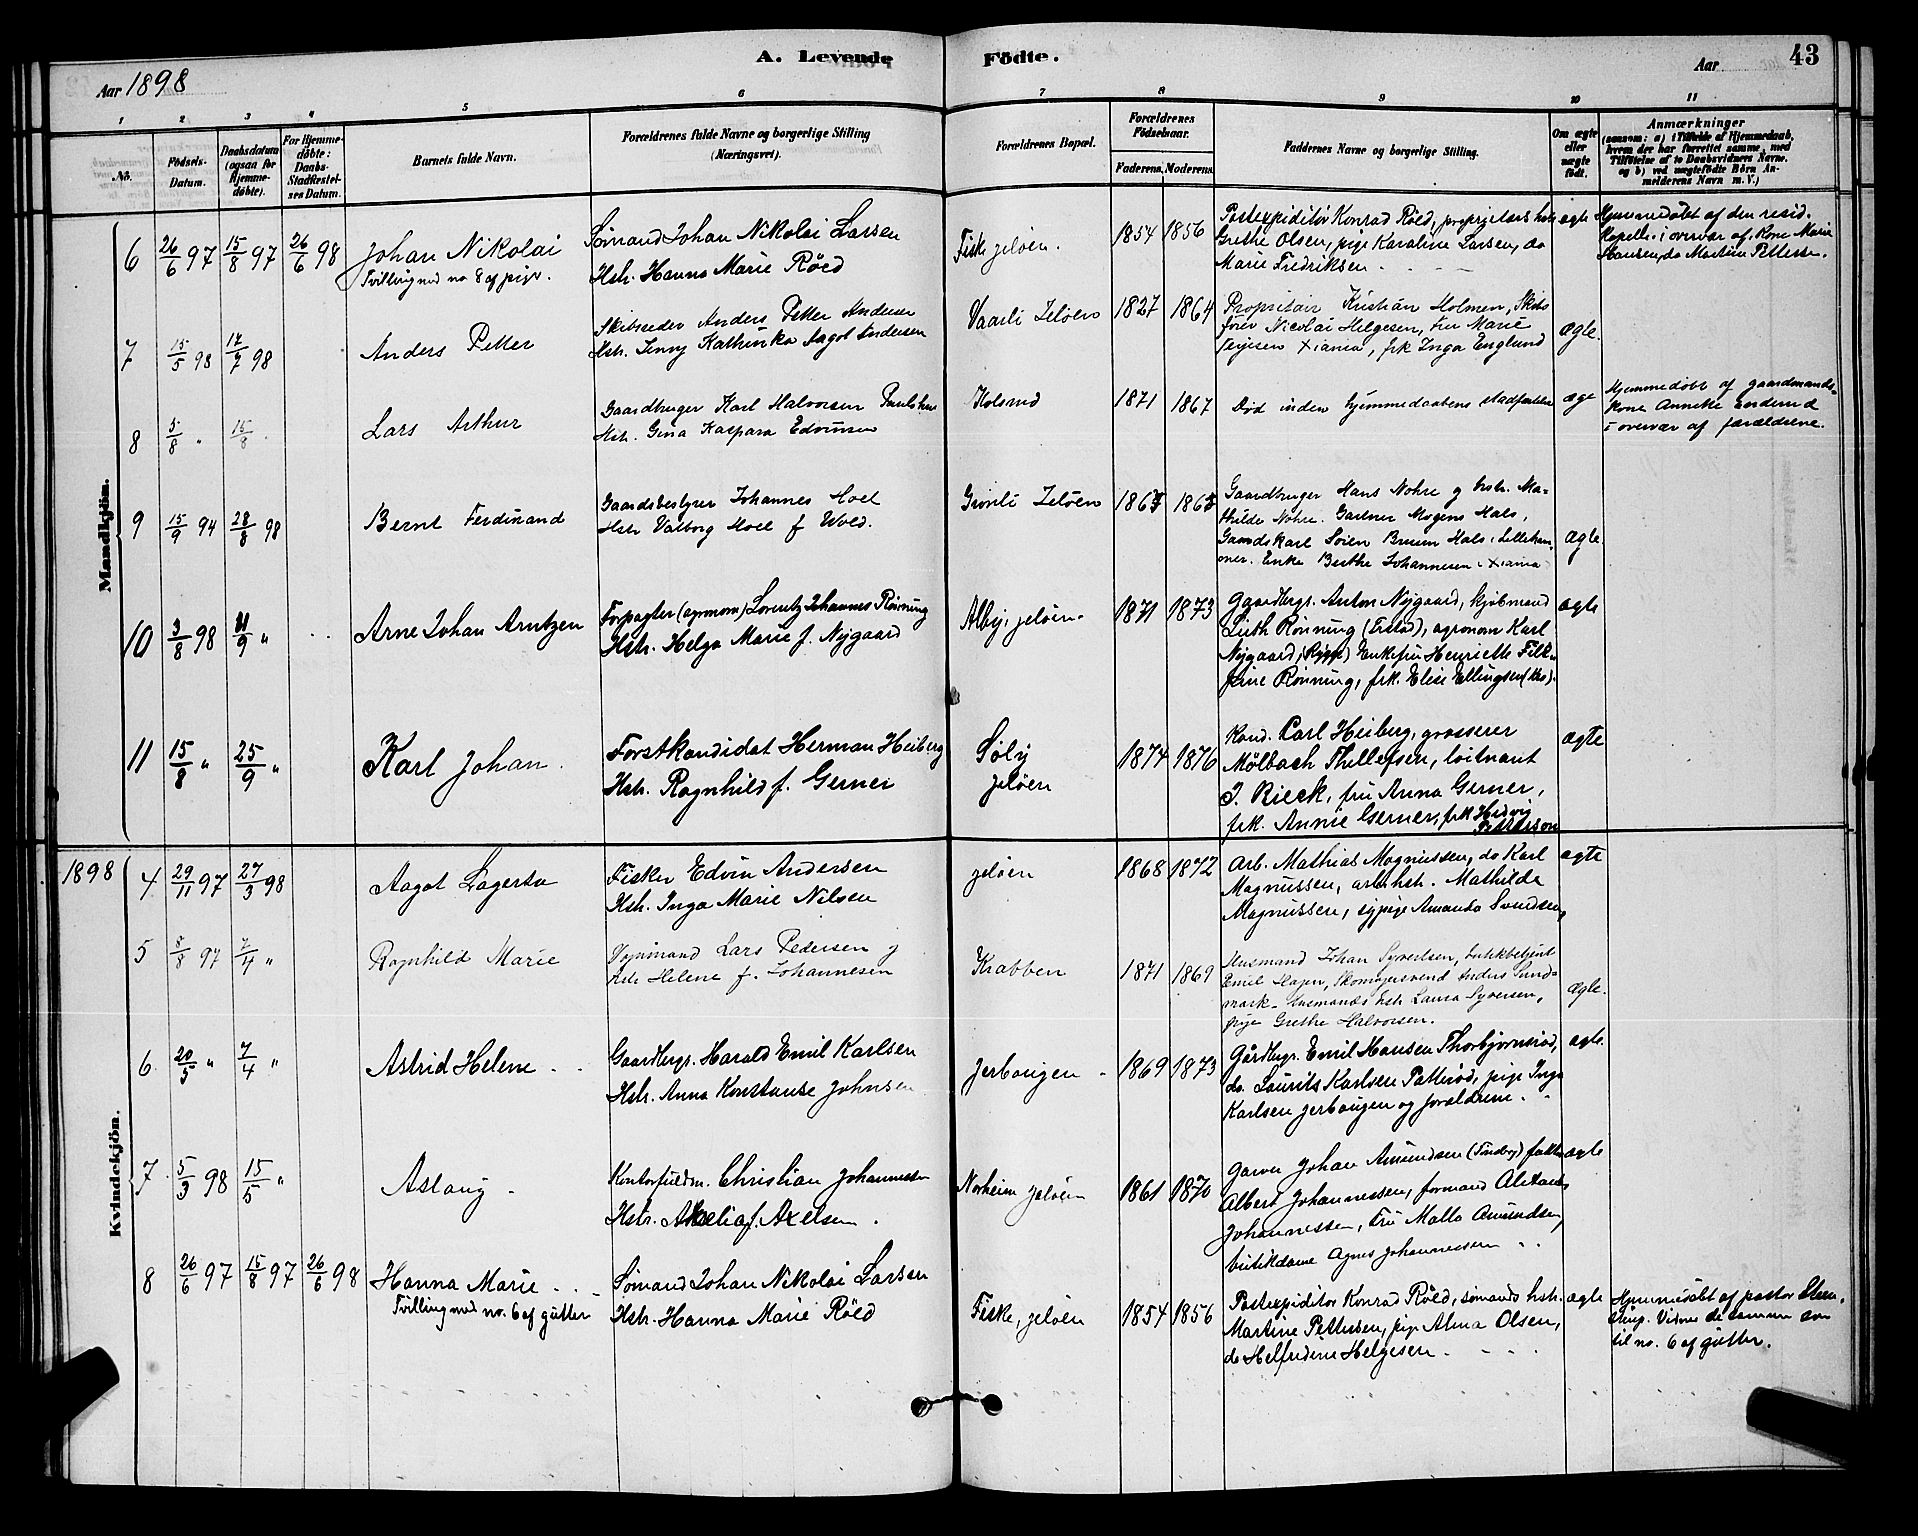 Aar 1898
A. Levende Födte.
Aar
43
1 2 3 4 5 6 7 8 9 10 11
No.
Födsels-Datum.
Daabsdatum (ogsaa for Hjemmedöbte).
For Hjemmedöbte: Daabs-Stadfæstelses Datum.
Barnets fulde Navn.
Forældrenes fulde Navne og borgerlige Stilling (Næringsvei).
Forældrenes Bopæl.
Forældrenes Födselsaar.
Faderens. Moderens.
Faddernes Navne og borgerlige Stilling.
Om ægte eller uægte födt.
Anmærkninger
(saasom: a) i Tilfælde af Hjemmedaab, hvem der har forrettet samme, med Tilföielse af to Daabsvidners Navne, og b) ved uægtefödte Börn Anmelderens Navn m. V.)
Mandkjön.
6 26/6 97 15/8 97 26/6 98
Johan Nikolai
Tvilling med no 8 af piger.
Sømand Johan Nikolai Larsen
Hstr. Hanna Marie Røed
Fiske jeløen.
1854 1856
Postexpeditör Konrad Röed, proprietærs hstr
Grethe Olsen, pige Karoline Larsen, do
Marie Fredriksen
ægte
Hjemmedöbt af den resid.
Kapellan i overvær af Kone Marie
Hansen, do Martine Pettersen.
7 15/5 98 17/7 98
Anders Petter
Skibsreder Anders Petter Andersen
Hstr. Jenny Kathinka Aagot Andersen
Vaarli Jeløen
1827 1864
Propritair Kristian Holmen, Skibs
förer Nicolai Helgesen, Fru Marie
Xiania, frk Inga Englund
ægte.
8 5/8 " 15/8
Lars Arthur
Gaardbruger Karl Halvorsen
Hstr. Gina Kaspara Edvinsen
Kolsrud
1871 1867
Død inden hjemmedaabens stadfæstelse
ægte
Hjemmedøbt af gaardmands-
kone Annette
i overvær af forældrene.
9 15/9 94 28/8 98
Bernt Ferdinand
Gaardsbestyrer Johannes Hoel
Hstr Valborg Hoel f Wold.
Grønli Jeløen
Gaardbruger Hans Nohre g hstr. Ma-
thilde Nohre. Gartner Mogens Hals,
Gaardskarl Sören Bruun Hals, Lilleham-
mer. Enke Berthe Johannesen Xiania
ægte.
10 3/8 98 11/9 "
Arne Johan Arntzen
Forpagter (agronom) Lorentz Johannes Rønning
Hstr. Helga Marie f. Nygaard
Alby, jeløen.
1871 1873
Gaardbrgr. Anton Nygaard, kjöbmand
Rønning (Erstad), agronom Karl
Nygaard, (Rygge) Enkefru Henriette
Rønning, frk. Elise Ellingsen
ægte
11 15/8 " 25/9 "
Karl Johan.
Forstkandidat Herman Heiberg
Hstr. Ragnhild f. Gerner
Søly
jeløen
1874 1876
Kand. Carl Heiberg, grosserer
Mölbach Thellefsen, löitnant
J. Rieck, fru Anna Gerner,
frk. Annie Gerner, frk Hedvig
Petterson
ægte
Kvindekjön.
1898 4. 29/11 97 27/3 98
Aagot Lagerta
Fisker Edvin Andersen
Hstr. Inga Marie Nilsen
jeløen
1868 1872
Arb. Mathias Magnussen, do Karl
Magnussen, arb. hstr. Mathilda
Magnussen, sypige Amanda Svendsen
ægte
5 8/8 97 7/4 "
Ragnhild Marie
Vognmand Lars Pedersen g
hstr Helene f. Johannesen
Krabben
1871 1869
Husmand Johan Syvertsen, butikbetjent
Emil Hagen, Skomagersvend Anders Sund-
mark, husmands hstr Laura Syversen,
pige Grethe Halvorsen.
ægte.
6. 20/5 " 7/4 "
Astrid Helene
Gaardbrgr. Harald Emil Karlsen
Hstr. Anna Konstanse Johnsen
Jerbaugen
1869 1873
Gårdbrgr. Emil Hansen Thorbjørnsrød,
do. Laurits Karlsen Patterød, pige Inga
Karlsen jerbaugen og forældrene.
ægte.
7. 5/3 98 15/5 "
Aslaug
Kontorfuldm. Christian Johannesen
Hstr. Amelia f. Axelsen.
Norheim jeløen
1861 1870
Garver Johan Amundsen
Albert Johannessen, formand
Johannessen, Fru Malla Amundsen,
butikdame Agnes Johannessen
ægte
8 26/6 97 15/8 97 26/6 98
Hanna Marie
Tvilling med no. 6 af gutter
Sømand Johan Nikolai Larsen
Hstr. Hanna Marie Røed
Fiske, jeløen
1854 1856
Postexpeditör Konrad Röed, sømands hstr.
Martine Pettersen, pige Alma Olsen,
do Helfridine Helgesen
ægte
Hjemmedøbt af pastor
Vidner de samme som
til no. 6 af gutter.